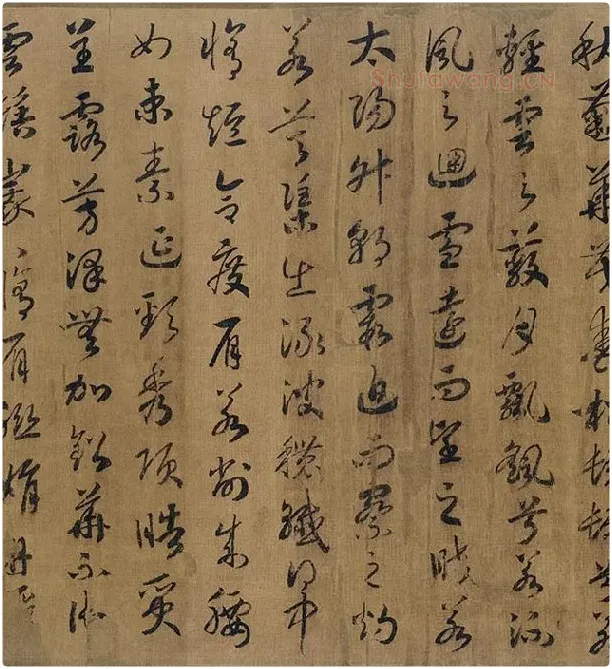 秋菊華茂春松髣髴兮若
輕雲之蔽月飄颻兮若流
風之迴雪遠而望之皎若
太陽升朝霞迫而察之灼
若芙蕖出淥波穠纖得中
脩短合度肩若削成腰
如束素延頸秀項皓質
呈露芳澤無加鉛華不御
雲髻峩〻脩眉聯娟丹脣
Shufawang.CN